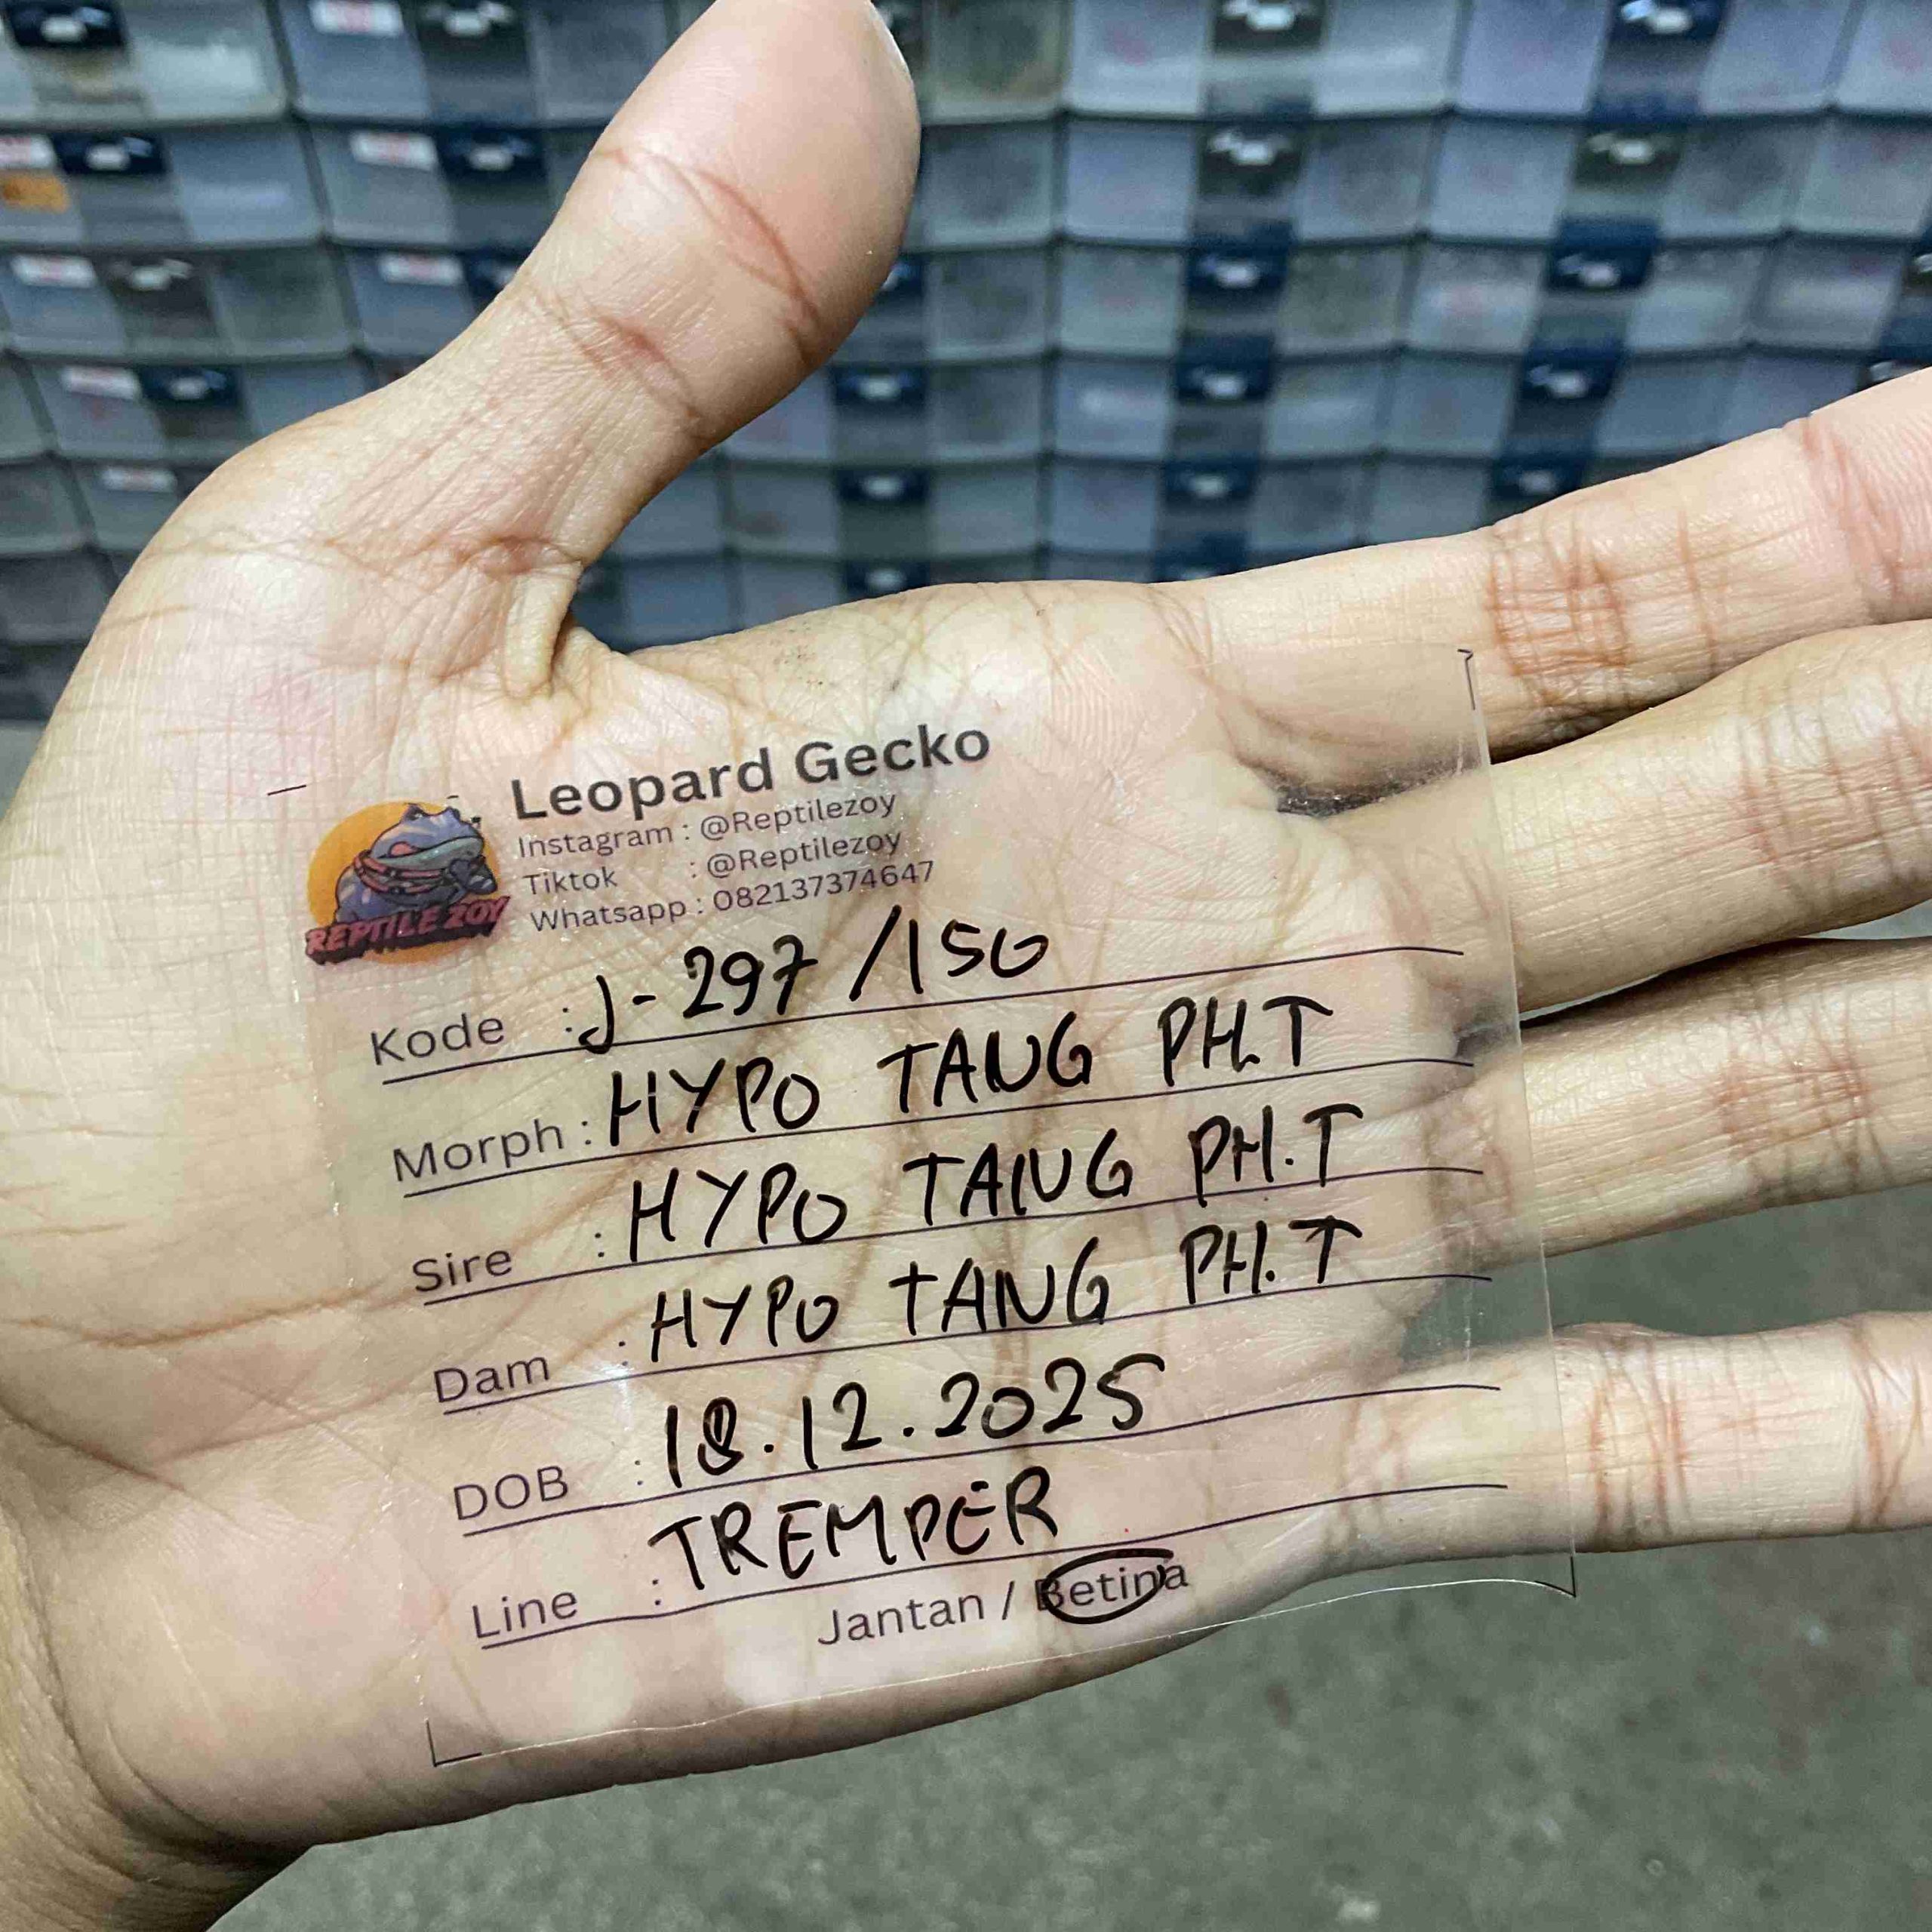 Leopard Gecko
Instagram : @Reptilezoy
Tiktok : @Reptilezoy
Whatsapp : 082137374647
REPTILE ZOY
Kode : J-297 /150
Morph : HYPO TANG PH.T
Sire : HYPO TANG PH.T
Dam : HYPO TANG PH.T
DOB : 18.12.2025
Line : TREMPER
Jantan / Betina